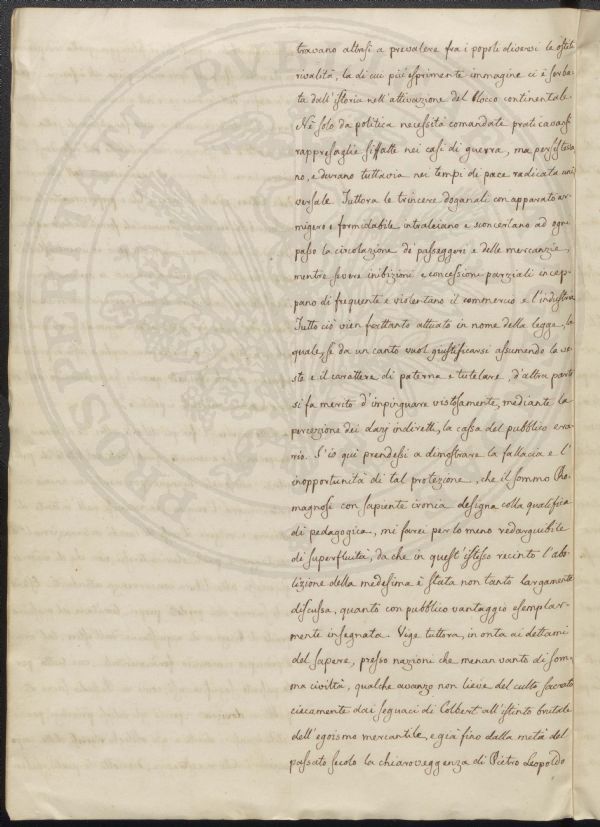 travano altresì a prevalere fra i popoli diversi le ostili
rivalità, la di cui più esprimente immagine ci è serba-
ta dall'istoria nell'attivazione del blocco continentale.
Nè solo da politica necessità comandate praticavansi
rappresaglie siffatte nei casi di guerra, ma persisteva
no, e durano tuttavia nei tempi di pace radicata uni
versale. Tuttora le trincere doganali con apparato ar-
migero e formidabile intralciano e sconcertano ad ogni
passo la circolazione de' passeggeri e delle mercanzie,
mentre severe inibizioni e concessioni parziali incep-
pano di frequente e violentano il commercio e l'industria
Tutto ciò vien frattanto attuato in nome della legge, la
quale, se da un canto vuol giustificarsi assumendo la ve-
ste e il carattere di paterna e tutelare, d'altra parte
si fa merito d'impinguare vistosamente, mediante la
percezione dei dazj indiretti, la cassa del pubblico era-
rio. S'io qui prendessi a dimostrare la fallacia e l'
inopportunità di tal protezione, che il sommo Ro-
magnosi con sapiente ironia designa colla qualifica
di pedagogica, mi farei per lo meno redarguibile
di superfluità, da che in quest'istesso recinto l'abo-
lizione della medesima è stata non tanto largamente
discussa, quanto con pubblico vantaggio esemplar-
mente insegnata. Vige tuttora, in onta ai dettami
del sapere, presso nazioni che menan vanto di som-
ma civiltà, qualche avanzo non lieve del culto sacrato
ciecamente dai seguaci di Colbert all'istinto brutale
dell'egoismo mercantile, e già fino dalla metà del
passato secolo la chiaroveggenza di Pietro Leopoldo